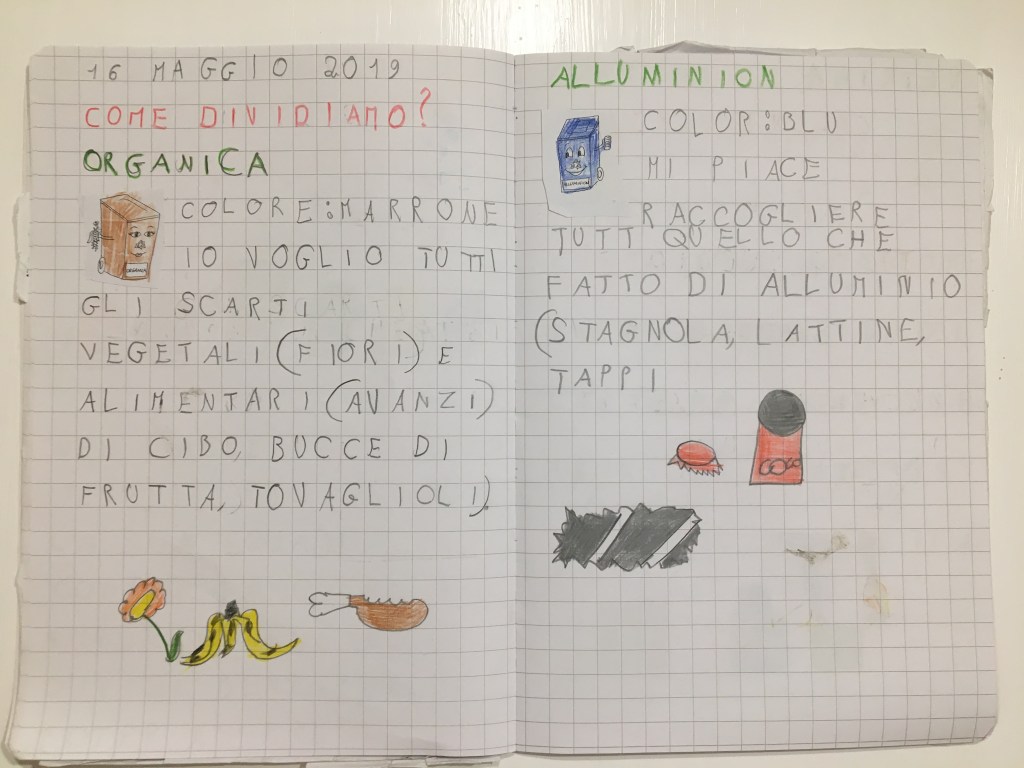 16 MAGGIO 2019
COME DIVIDIAMO?
ORGANICA
COLORE:MARRONE
IO VOGLIO TUTTI
GLI SCARTI
VEGETALI (FIORI) E
ALIMENTARI (AVANZI)
DI CIBO, BUCCE DI
FRUTTA, TOVAGLIOLI).
ORGANICA
ALLUMINION
COLOR:BLU
MI PIACE
RACCOGLIERE
TUTT QUELLO CHE
FATTO DI ALLUMINIO
(STAGNOLA, LATTINE,
TAPPI